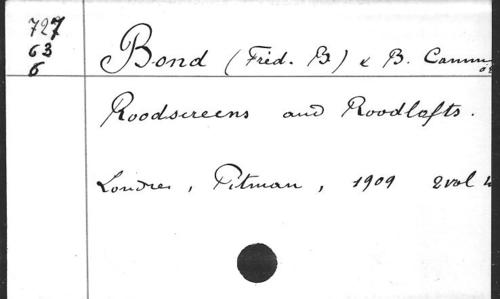 727
63
6
Bond (Fréd. B.) & B. Camm
Roodscreens and Roodlofts.
Londres, Pitman, 1909 2 vol